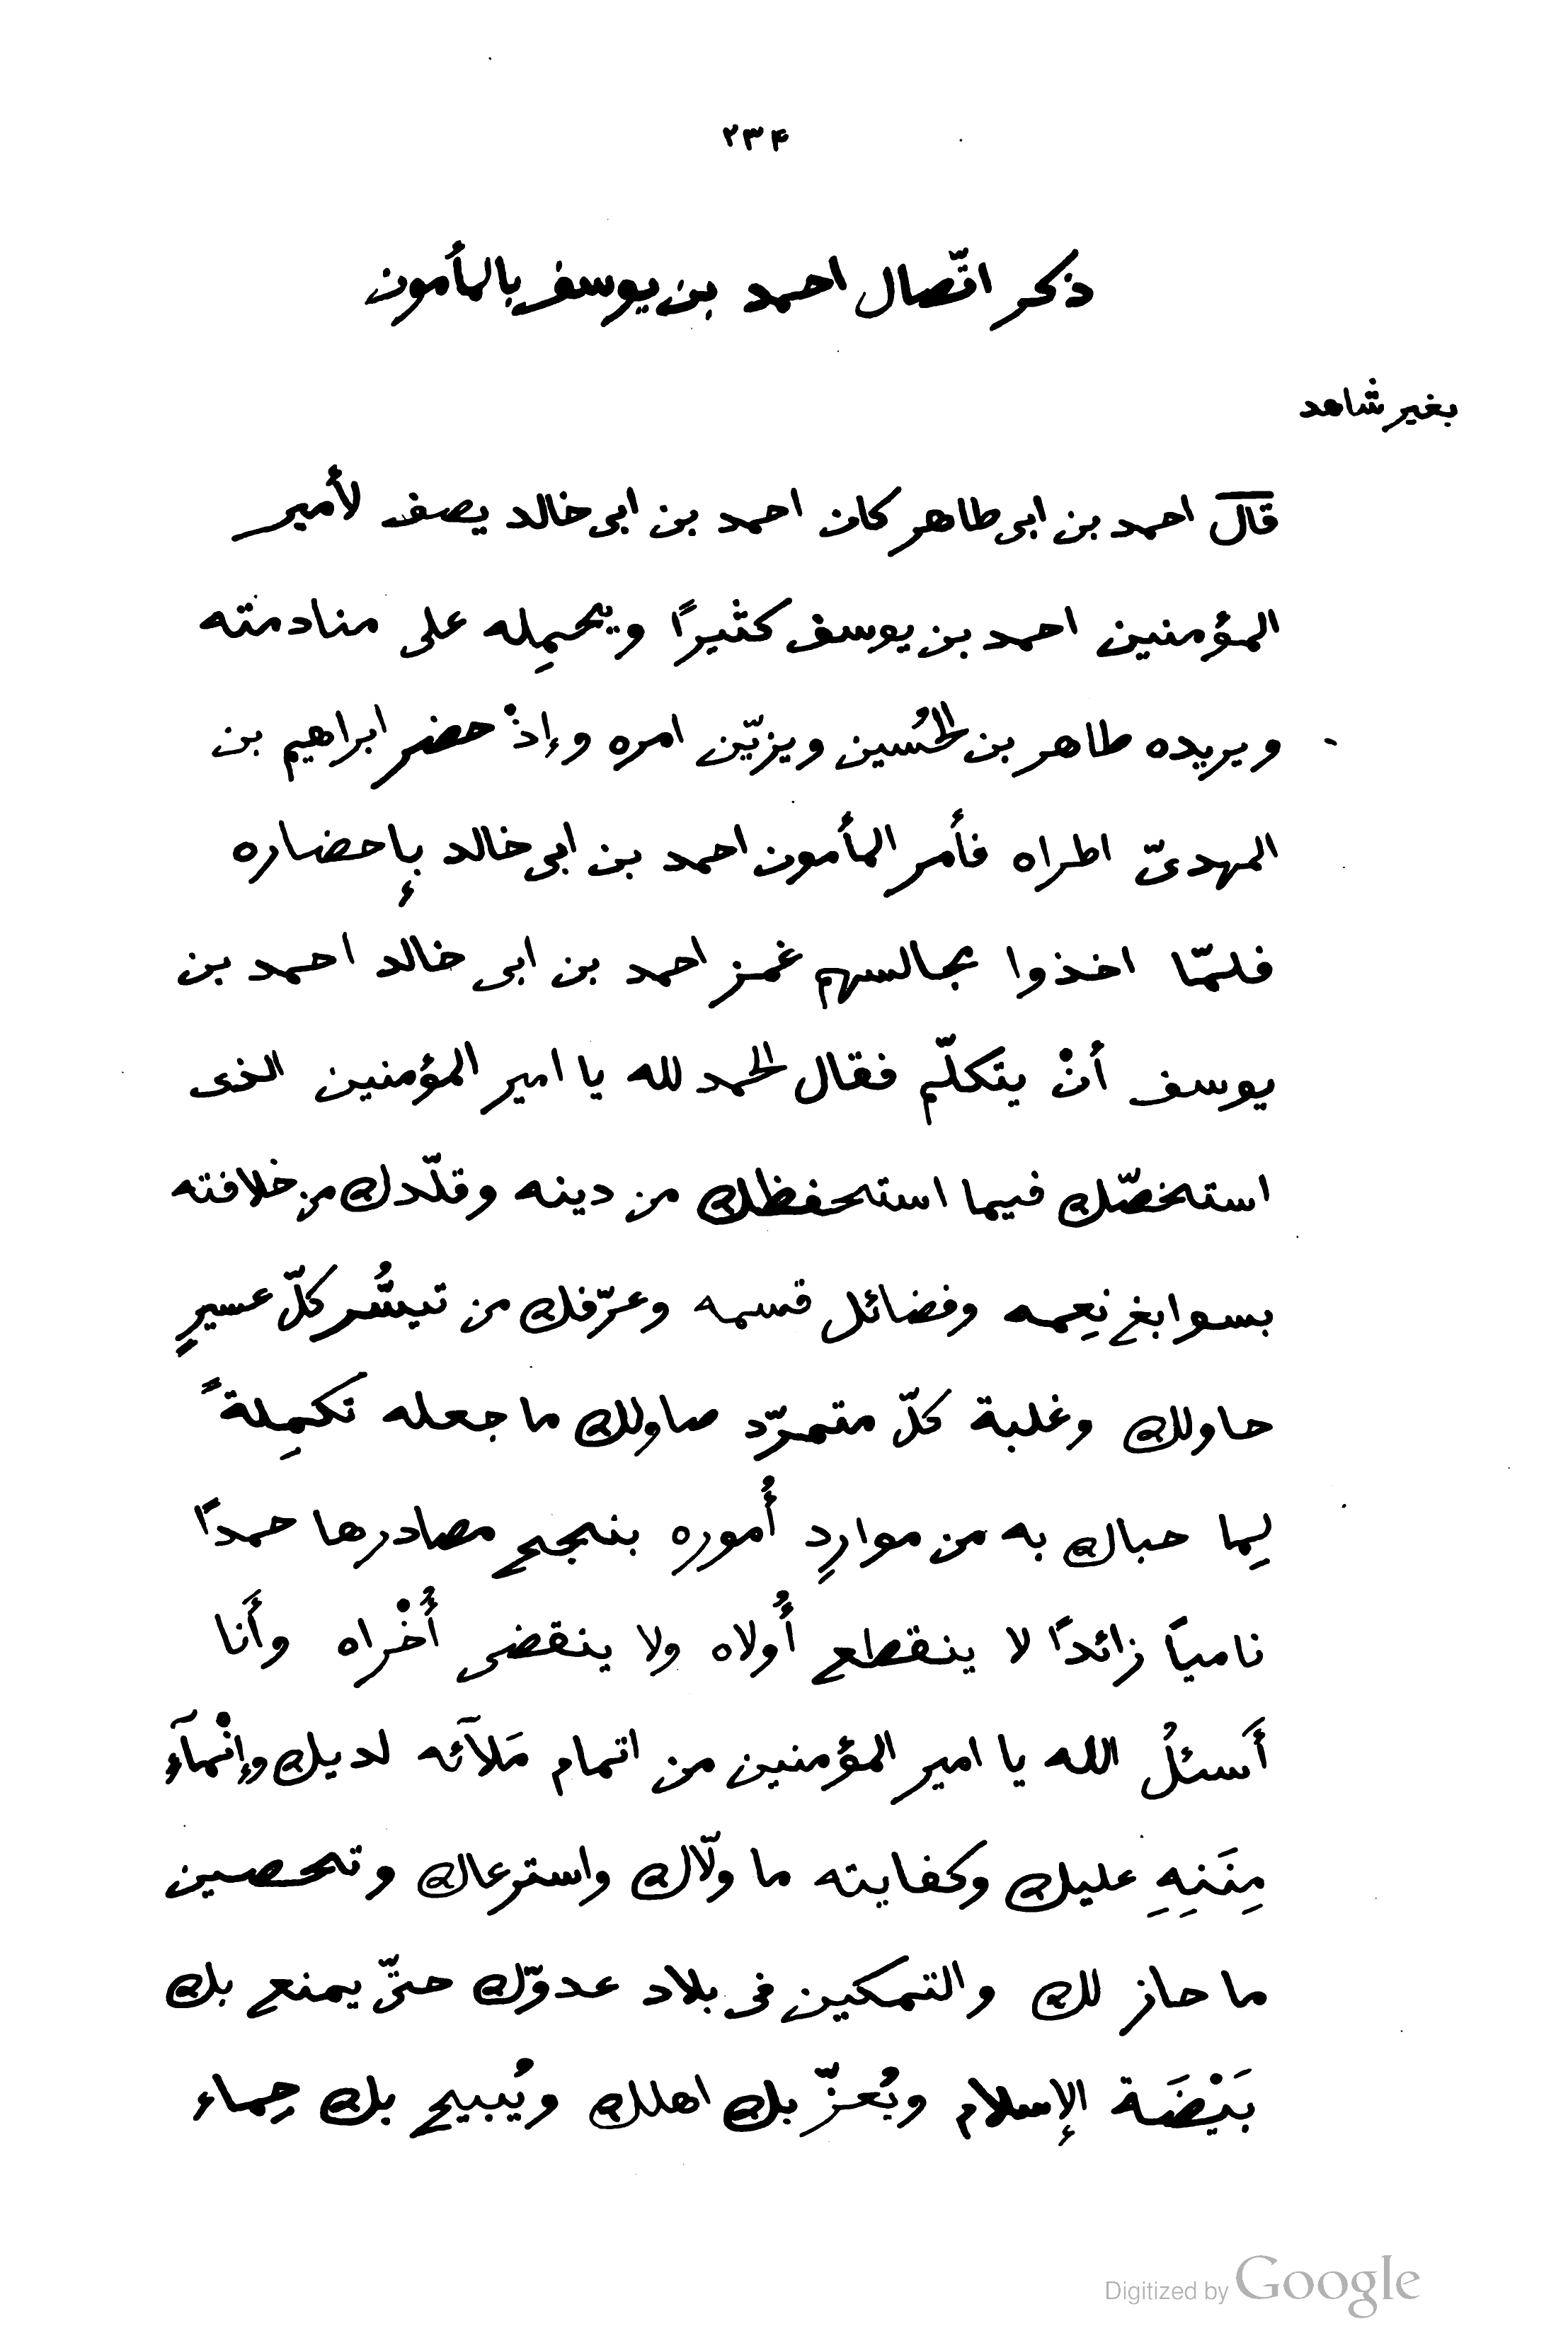 ٢٣۴
ذكر اتّصال احمد بن يوسف بالمأمون
بغير شاهد
قال احمد بن ابى طاهر كان احمد بن ابى خالد يصف لأمير
المؤمنين احمد بن يوسف كثيرًا ويحمِله على منادمته
ويريده طاهر بن الحُسين ويزيّن امره وإذْ حضر ابراهيم بن
المهدىّ اطراه فأمر المأمون احمد بن ابى خالد بإحضاره
فلمّا اخذوا مجالسهم غمز احمد بن ابى خالد احمد بن
يوسف أنْ يتكلّم فقال الحمد لله يا امير المؤمنين الذى
استخصّك فيما استحفظك من دينه وقلّدك من خلافته
بسوابغ نِعِمه وفضائل قسمه وعرّفك من تيسُّر كلّ عسيرٍ
حاولك وغلبة كلّ متمرّد صاولك ما جعله تكمِلةً
لِما حباك به من موارِد أُموره بنجح مصادرها حمدًا
ناميًا زائدًا لا ينقطع أُولاه ولا ينقضى أُخْراه وأَنا
أَسئلُ الله يا امير المؤمنين من اتمام مَلآئه لديك وإنْمآءِ
مِنَنِهِ عليك وكفايته ما ولّاك واسترعاك وتحصين
ما حاز لك والتمكين فى بلاد عدوّك حتّى يمنع بك
بَيْضَة الإسلام ويُعزّ بك اهلك ويُبيح بك حِماء
Digitized by Google